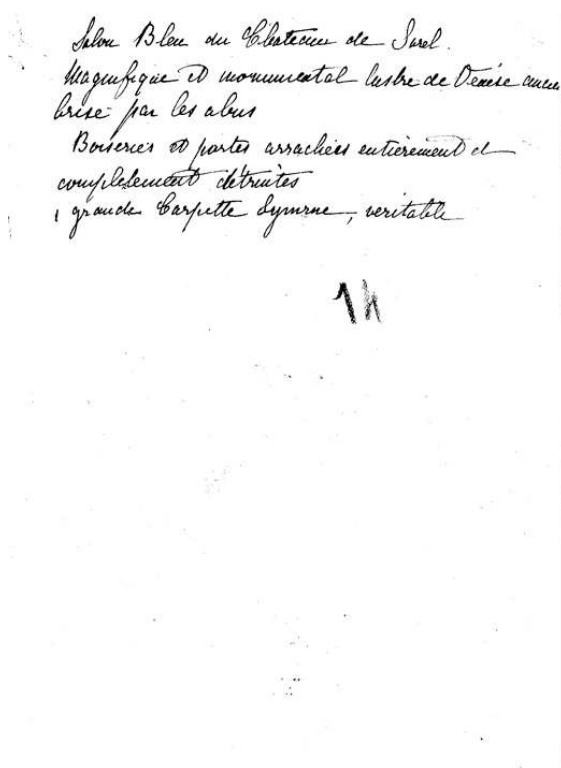 Salon Bleu du Château de Sorel.
Magnifique et monumental lustre de Venise ancien
brisé par les obus
Boiseries et portes arrachées entièrement et
complètement détruites
1 grande Carpette Symrne, veritable
14